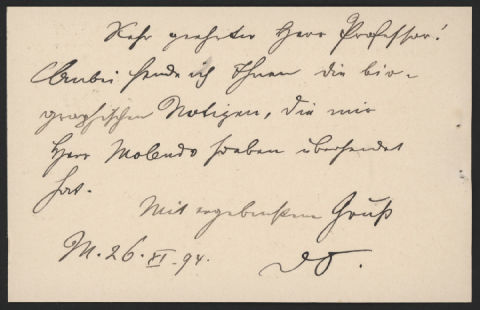 Sehr geehrter Herr Professor!
Anbei sende ich Ihnen die bio-
graphischen Notizen, die mir
Herr Molendo soeben übersendet
hat.
Mit ergebenstem Gruß
M. 26. XI. 94.